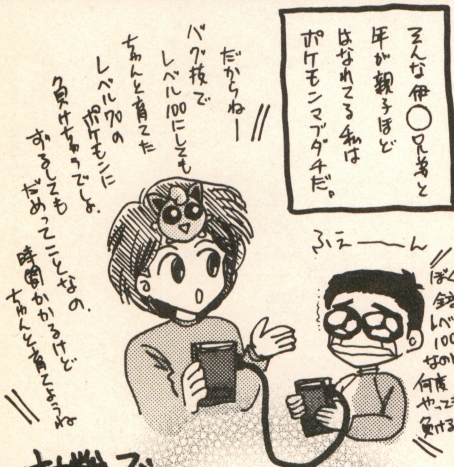 そんな伊○兄弟と
年が親子ほど
はなれてる私は
ポケモンマブダチだ。
だからねー
バグ技で
レベル100にしても
ちゃんと育てた
レベル70の
ポケモンに
負けちゃうでしょ。
ずるしても
だめってことなの。
時間かかるけど
ちゃんと育てようね
ふえーーん
ぼく
レベ
100
なの
何度
やって
負ける